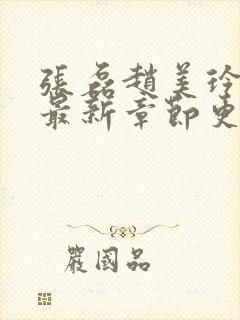 張磊趙美玲
最新章節更
嚴國品